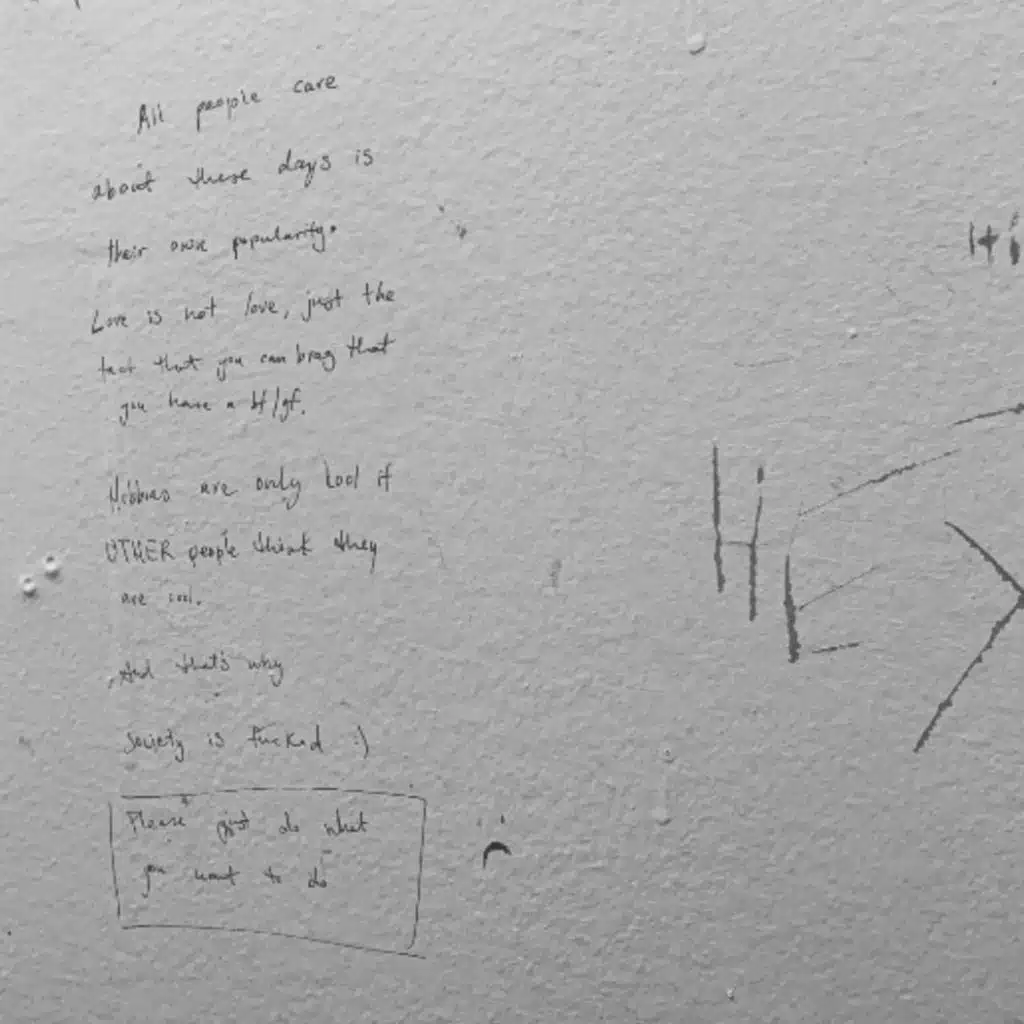 All people care
about these days is
their own popularity.
Love is not love, just the
fact that you can brag that
you have a bf/gf.
Hobbies are only kool if
OTHER people think they
are cool.
And that's why
society is fucked :)
Please just do what
you want to do
Hi
Hi